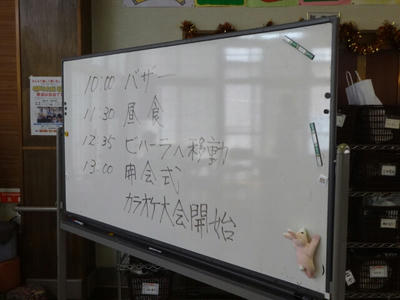 10:00 バザー
11:30 昼食
12:35 ビハーラへ移動
13:00 開会式
カラオケ大会開始